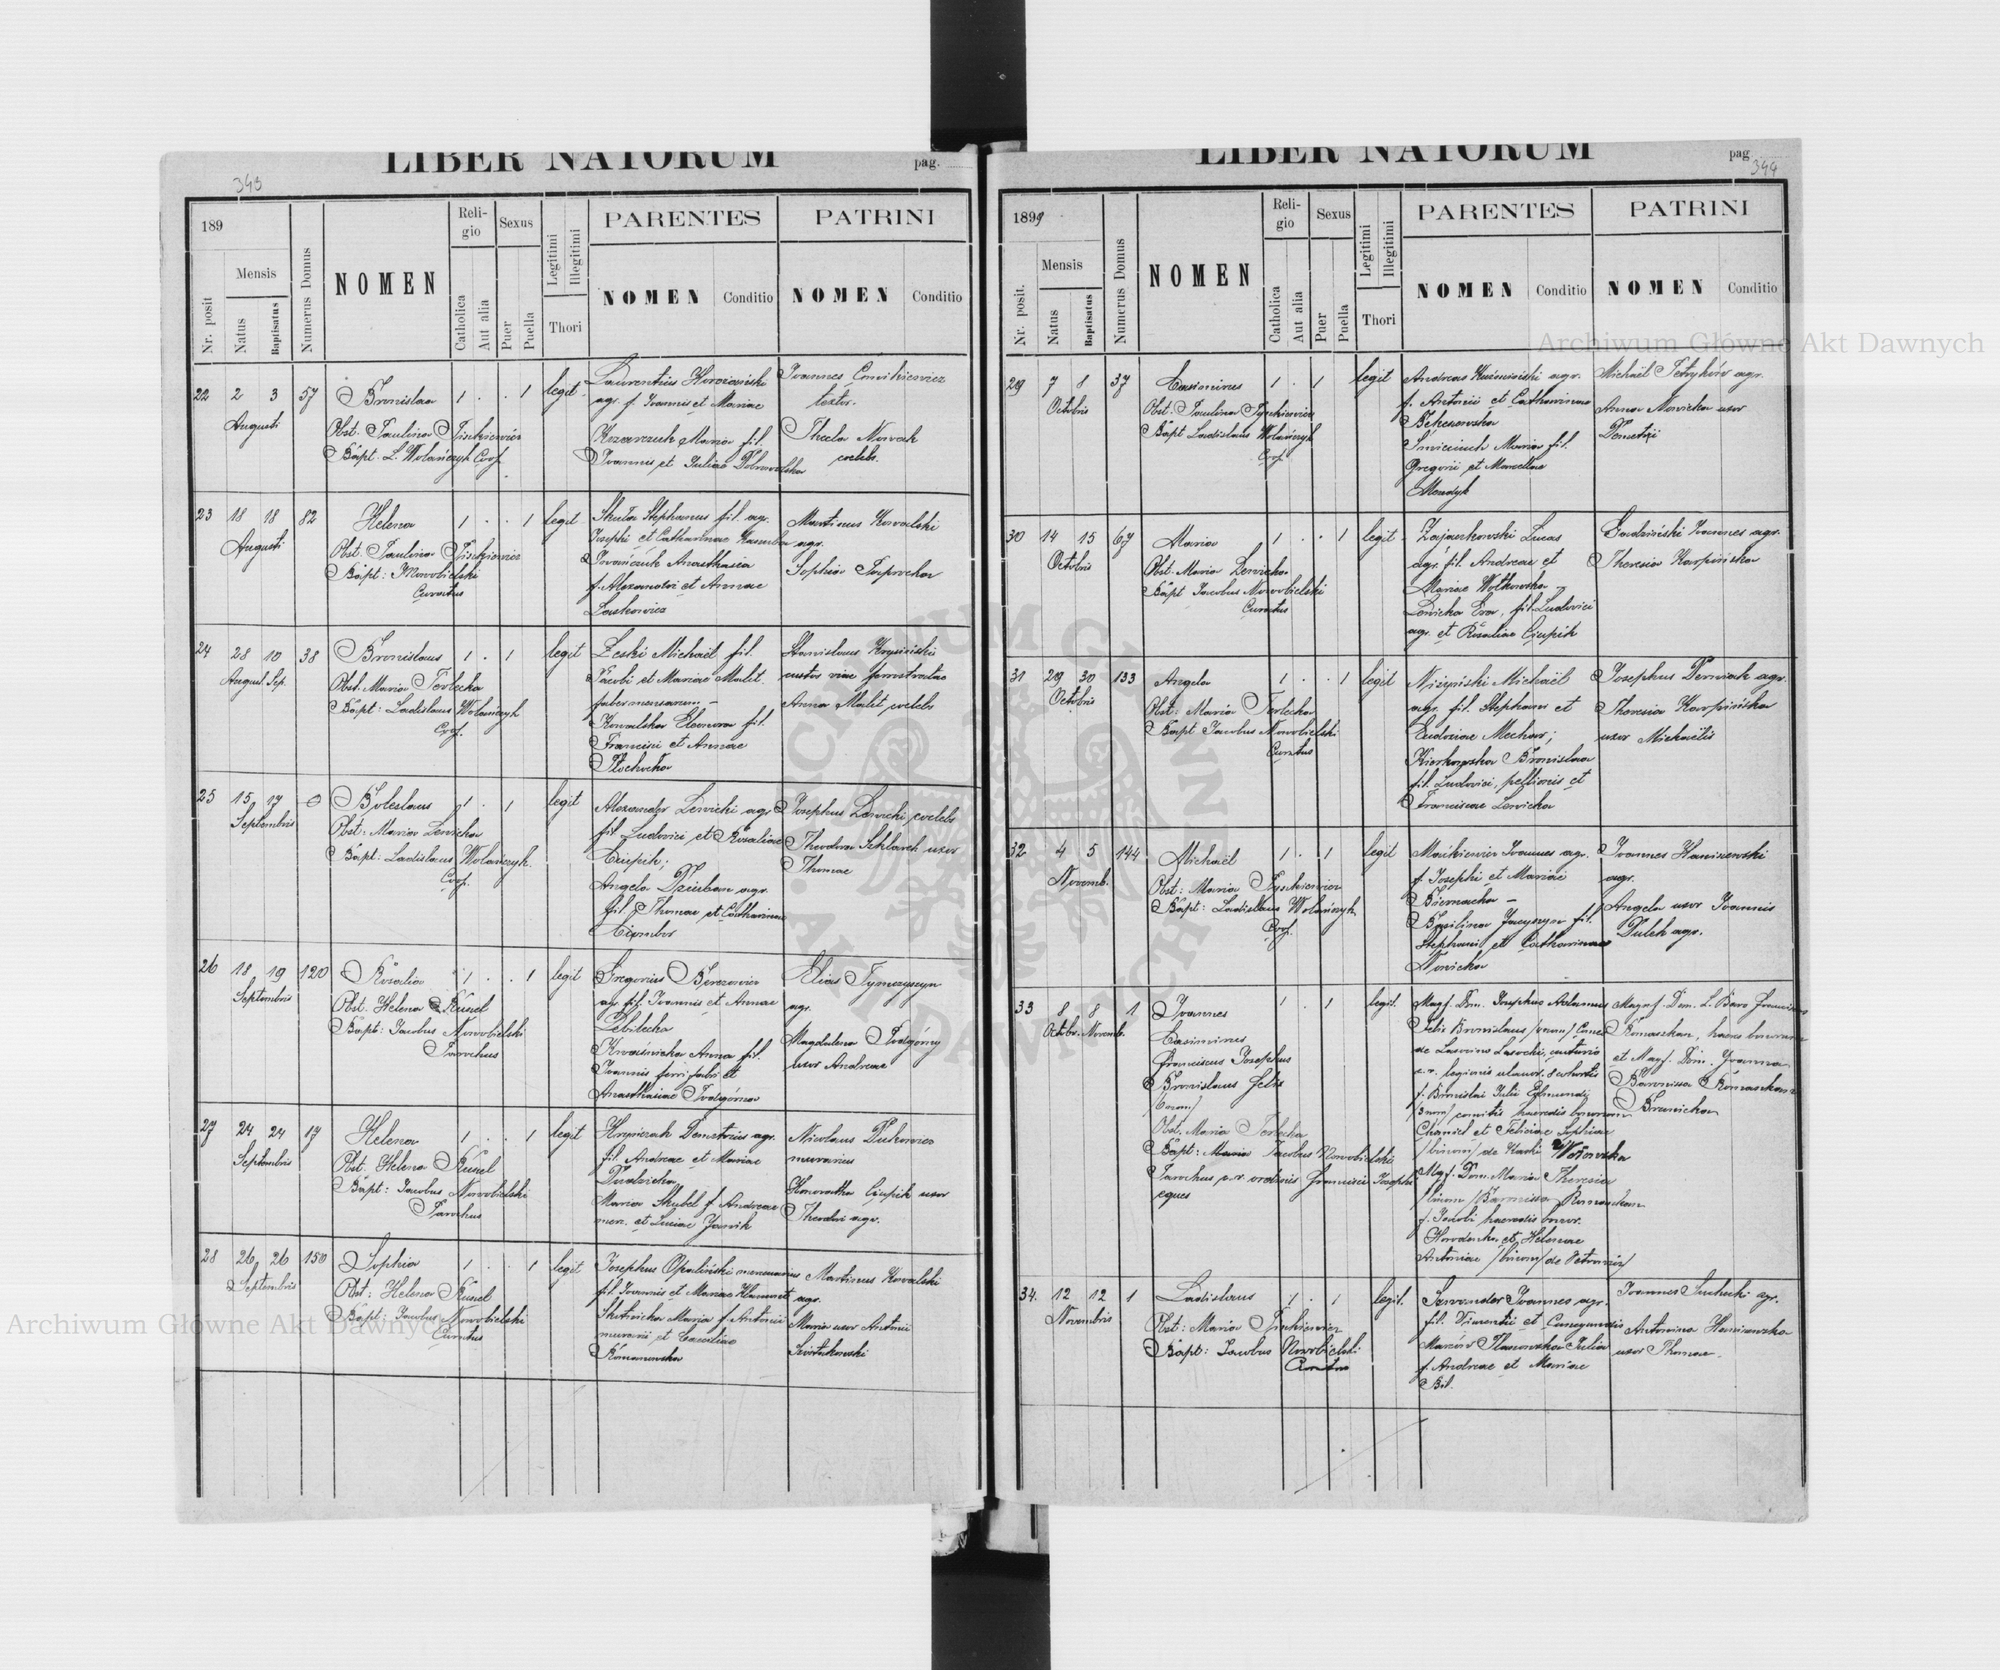 LIBER NATORUM
pag.
343
189
Nr. posit
Mensis
Natus
Baptisatus
Numerus Domus
NOMEN
Reli-
gio
Catholica
Aut alia
Sexus
Puer
Puella
Legitimi
Illegitimi
Thori
PARENTES
NOMEN
Conditio
PATRINI
NOMEN
Conditio
22 2 3 57
Augusti
Bronislava 1 . . 1 legit
Obst. Paulina Tischkiewicz
Bapt. L. Wolańczyk Coop.
Laurentius
agr. f. Joannis et Mariae
Maria fil.
Joannis et Juliae Dobrowolska
Joannes
textor.
Thecla Nowak
coelebs.
23 18 18 82
Augusti
Helena 1 . . 1 legit
Obst. Paulina Tischkiewicz
Bapt: J Nowobielski
Curatus
Skula Stephanus fil. agr.
Josephi et Catharinae
Anasthasia
f. Alexandri et Annae
Laskowicz
Martinus Kowalski
agr.
Sophia
24 28 10 38
August. Sep.
Bronislaus 1 . 1 legit
Obst. Maria Terlecka
Bapt: Ladislaus Wolańczyk
Coop.
Zeski Michaël fil.
Jacobi et Mariae Malit
faber mensarum –
Kowalska Eleonora fil.
Francisci et Annae
Płochocka
Stanislaus Krysiński
custos viae ferrstratae
Anna Malit coelebs
25 15 17 0
Septembris
Boleslaus 1 . 1 legit
Obst: Maria Lewicka
Bapt: Ladislaus Wolańczyk.
Coop.
Alexander Lewicki agr.
fil Ludovici et Rosaliae
Ciupik;
Angela Dziuban agr.
fil. Thomae et Catharinae
Josephus Lewicki coelebs
Theodora Schlarek uxor
Thomae
26 18 19 120
Septembris
Rosalia 1 . . 1 legit
Obst. Helena Kusel
Bapt: Jacobus Nowobielski
Parochus
Gregorius Berezowicz
agr. fil. Joannis et Annae
Anna fil.
Joannis ferri fabri et
Anasthasiae Podgórna
Elias Tymczyszyn
agr.
Magdalena Podgórny
uxor Andreae
27 24 24 17
Septembris
Helena 1 . . 1 legit
Obst. Helena Kusel
Bapt: Jacobus Nowobielski
Parochus
Demetrius agr.
fil. Andreae et Mariae
Maria Skubel f Andreae
mer. et Luciae Jawnik
Nicolaus Dutkowicz
murarius
Honoratha Ciupik uxor
Theodori agr.
28 26 26 150
Septembris
Sophia 1 . . 1 legit
Obst: Helena Kusel
Bapt: Jacobus Nowobielski
Curatus
Josephus Opaliński mercenarius
fil. Joannis et Mariae
Skotnicka Maria f Antonii
murarii et Caeciliae
Romanowska
Martinus Kowalski
agr.
Maria uxor Antonii
LIBER NATORUM
pag
344
1899
Nr. posit.
Mensis
Natus
Baptisatus
Numerus Domus
NOMEN
Reli-
gio
Catholica
Aut alia
Sexus
Puer
Puella
Legitimi
Illegitimi
Thori
PARENTES
NOMEN
Conditio
PATRINI
NOMEN
Conditio
29 7 8 37
Octobris
Casimirus 1 . 1 legit
Obst. Paulina Tyschkiewicz
Bapt Ladislaus Wolańczyk
Coop.
Andreas agr.
f. Antonii et Catharinae
Maria fil.
Gregorii et Marcellae
Michaël Petryków agr.
Anna Nowicka uxor
Demetrii
30 14 15 67
Octobris
Maria 1 . . 1 legit
Obst. Maria Lewicka
Bapt Jacobus Nowobielski
Curatus
Zajaczkowski Lucas
agr. fil. Andreae et
Mariae Wołkowska
Lewicka Eva, fil Ludovici
agr. et Rosaliae Ciupik
Gadziński Joannes agr.
Theresia Karpińska
31 29 30 133
Octobris
Angela 1 . . 1 legit
Obst: Maria Terlecka
Bapt Jacobus Nowobielski
Curatus
Niżyński Michaël
agr. fil. Stephani et
Eudociae Mechar;
Bronislava
fil. Ludovici, pellionis et
Franciscae Lewicka
Josephus Derwak agr.
Theresia Karpińska
uxor Michaëlis
32 4 5 144
Novemb.
Michaël 1 . 1 legit
Obst: Maria Tyschkiewicz
Bapt: Ladislaus Wolańczyk
Coop.
Maćkiewicz Joannes agr.
f. Josephi et Mariae
Biernacka –
Basilina Jacyszyn fil.
Stephani et Catharinae
Nowicka
Joannes Haniszewski
agr.
Angela uxor Joannis
Dulek agr.
33 8 8 1
Octobr. Novemb.
Joannes 1 . 1 legit.
Casimirus
Franciscus Josephus
Bronislaus Felix
Obst. Maria Terlecka
Bapt: Jacobus Nowobielski
Parochus c.r. ordinis Francisci Josephi
eques
Magf. Dom. Josephus Adamus
Felix Bronislaus Comes
de Lasocin Lasocki, centurio
c.r. legionis
f. Bronislai Julii
comitis haeredis bonorum
et Feliciae Sophiae
/binom/ de
Mgf. Dom. Maria Theresia
/binom/ Baronissa Romaszkan
f. Jacobi haeredis bonor.
Horodenka et Helenae
Antoniae /binom/ de
Magnf. Dom. L. Baro Franciscus
Romaszkan, haeres bonorum
et Magf. Dom. Joanna
Baronissa Romaszkan
34. 12 12 1
Novembris
Ladislaus 1 . 1 legit.
Obst: Maria Tyschkiewicz
Bapt: Jacobus Nowobielski
Curatus
Joannes agr.
fil. et Cunegundis
Julia
f. Andreae et Mariae
Bil.
Joannes Suchecki agr.
Antonina Haniszewska
uxor Thomae.
Archiwum Główne Akt Dawnych
Archiwum Główne Akt Dawnych
ARCHIWUM GŁÓWNE AKT DAWNYCH